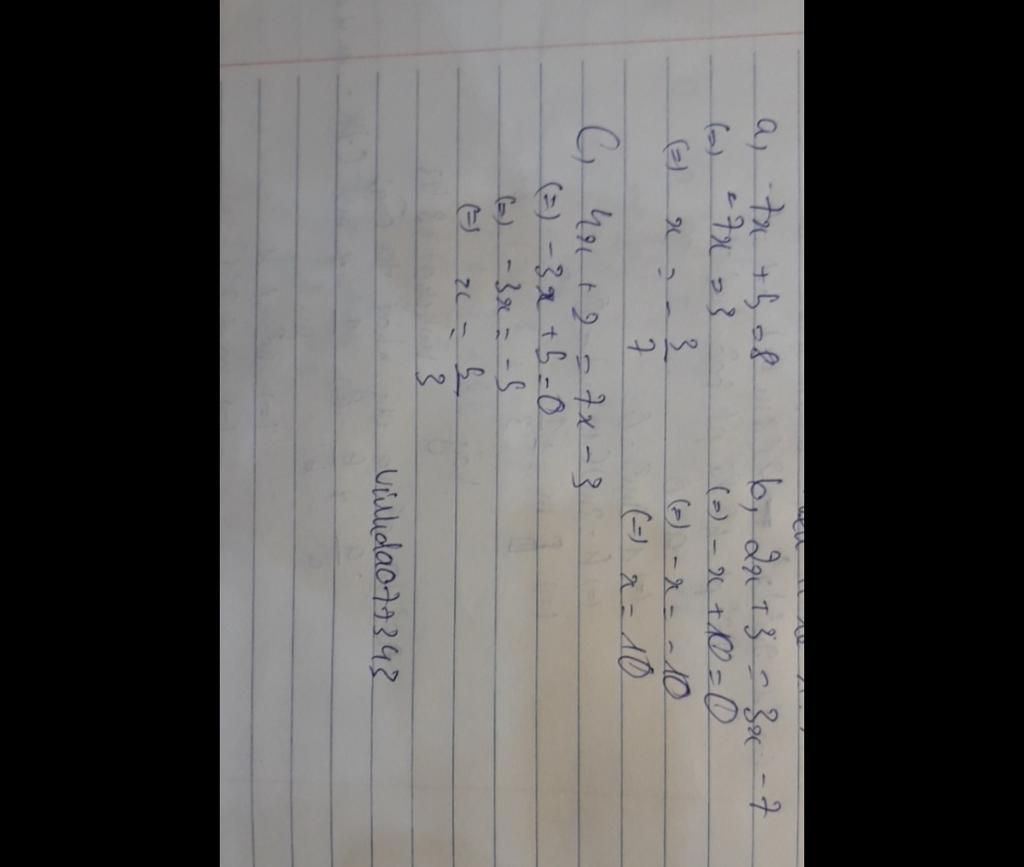 a, -7x + 5 = 8
(=) -7x = 3
(=) x = - 3/7
b, 2x + 3 = 3x - 7
(=) - x + 10 = 0
(=) - x = - 10
(=) x = 10
C, 4x + 2 = 7x - 3
(=) - 3x + 5 = 0
(=) - 3x = - 5
(=) x = 5/3
vinhdao77343